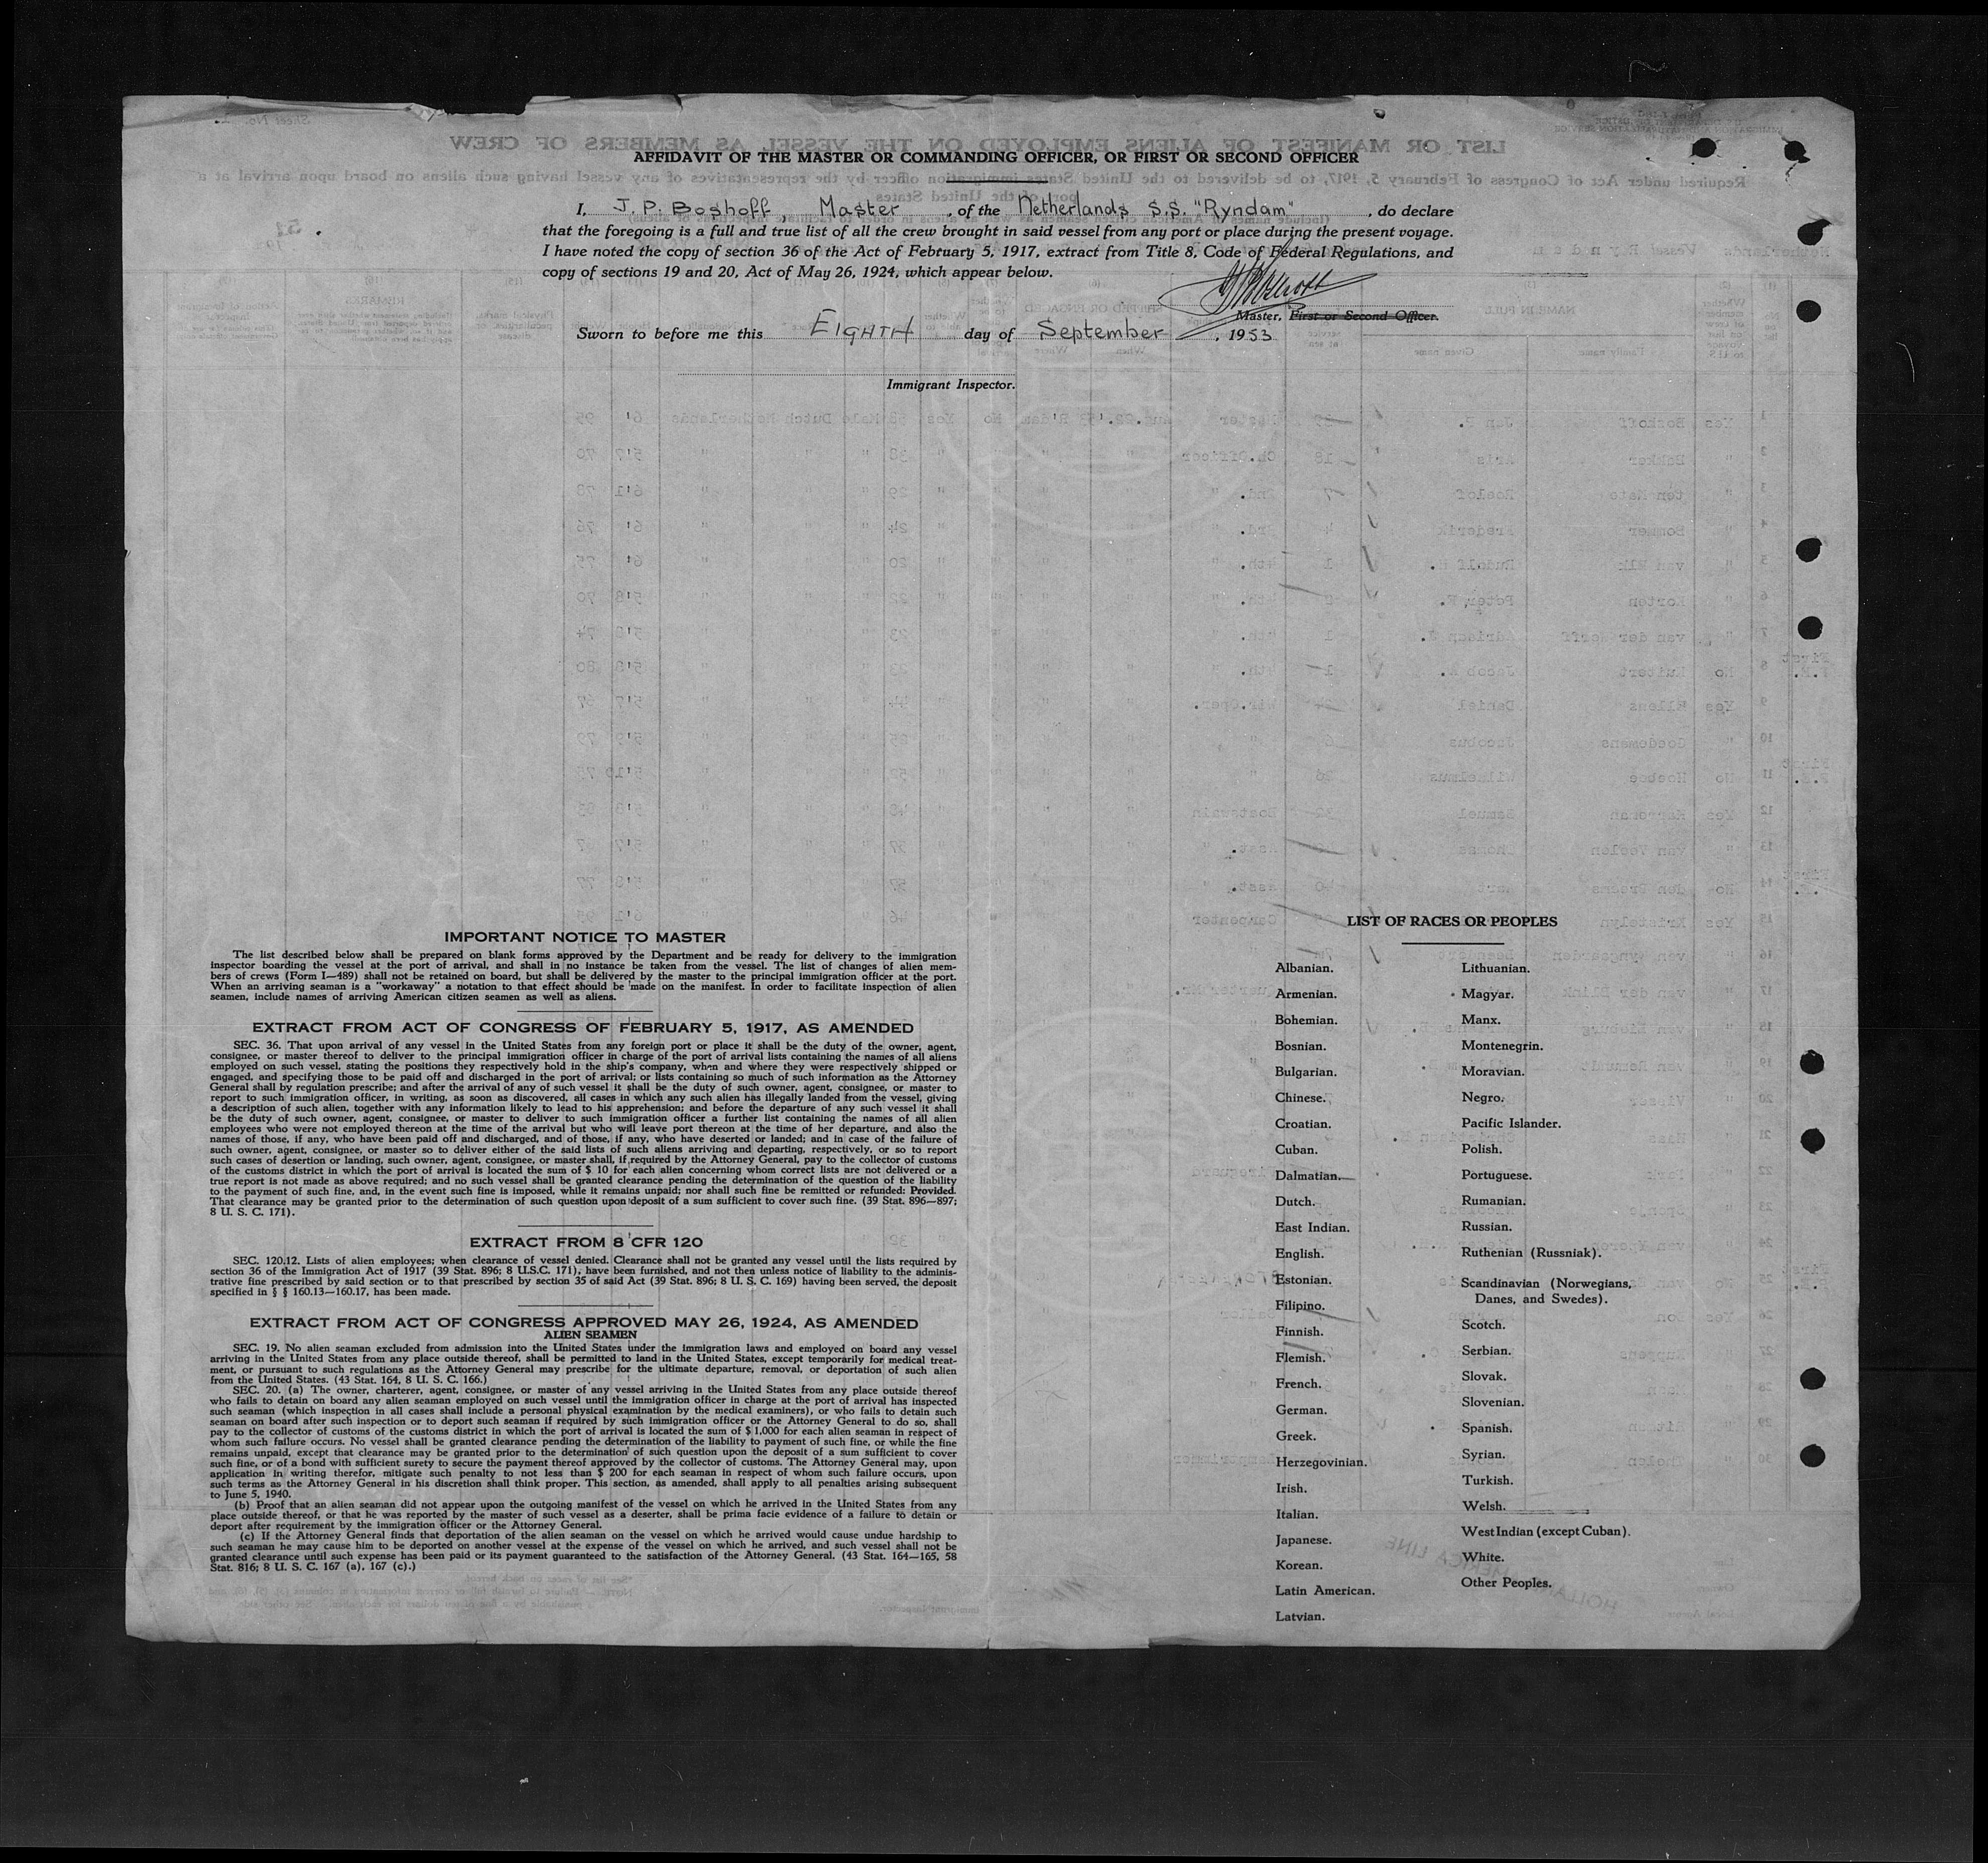 AFFIDAVIT OF THE MASTER OR COMMANDING OFFICER, OR FIRST OR SECOND OFFICER
I, J. P. Boshoff, Master, of the Netherlands S.S. "Ryndam", do declare
that the foregoing is a full and true list of all the crew brought in said vessel from any port or place during the present voyage.
I have noted the copy of section 36 of the Act of February 5, 1917, extract from Title 8, Code of Federal Regulations, and
copy of sections 19 and 20, Act of May 26, 1924, which appear below.
Master, First or Second Officer.
Sworn to before me this EIGHTH day of September, 1953
Immigrant Inspector.
IMPORTANT NOTICE TO MASTER
The list described below shall be prepared on blank forms approved by the Department and be ready for delivery to the immigration
inspector boarding the vessel at the port of arrival, and shall in no instance be taken from the vessel. The list of changes of alien mem-
bers of crews (Form I—489) shall not be retained on board, but shall be delivered by the master to the principal immigration officer at the port.
When an arriving seaman is a "workaway" a notation to that effect should be made on the manifest. In order to facilitate inspection of alien
seamen, include names of arriving American citizen seamen as well as aliens.
EXTRACT FROM ACT OF CONGRESS OF FEBRUARY 5, 1917, AS AMENDED
SEC. 36. That upon arrival of any vessel in the United States from any foreign port or place it shall be the duty of the owner, agent,
consignee, or master thereof to deliver to the principal immigration officer in charge of the port of arrival lists containing the names of all aliens
employed on such vessel, stating the positions they respectively hold in the ship's company, when and where they were respectively shipped or
engaged, and specifying those to be paid off and discharged in the port of arrival; or lists containing so much of such information as the Attorney
General shall by regulation prescribe; and after the arrival of any of such vessel it shall be the duty of such owner, agent, consignee, or master to
report to such immigration officer, in writing, as soon as discovered, all cases in which any such alien has illegally landed from the vessel, giving
a description of such alien, together with any information likely to lead to his apprehension; and before the departure of any such vessel it shall
be the duty of such owner, agent, consignee, or master to deliver to such immigration officer a further list containing the names of all alien
employees who were not employed thereon at the time of the arrival but who will leave port thereon at the time of her departure, and also the
names of those, if any, who have been paid off and discharged, and of those, if any, who have deserted or landed; and in case of the failure of
such owner, agent, consignee, or master so to deliver either of the said lists of such aliens arriving and departing, respectively, or so to report
such cases of desertion or landing, such owner, agent, consignee, or master shall, if required by the Attorney General, pay to the collector of customs
of the customs district in which the port of arrival is located the sum of $ 10 for each alien concerning whom correct lists are not delivered or a
true report is not made as above required; and no such vessel shall be granted clearance pending the determination of the question of the liability
to the payment of such fine, and, in the event such fine is imposed, while it remains unpaid; nor shall such fine be remitted or refunded: Provided.
That clearance may be granted prior to the determination of such question upon deposit of a sum sufficient to cover such fine. (39 Stat. 896—897;
8 U. S. C. 171).
EXTRACT FROM 8 CFR 120
SEC. 120.12. Lists of alien employees; when clearance of vessel denied. Clearance shall not be granted any vessel until the lists required by
section 36 of the Immigration Act of 1917 (39 Stat. 896; 8 U.S.C. 171), have been furnished, and not then unless notice of liability to the adminis-
trative fine prescribed by said section or to that prescribed by section 35 of said Act (39 Stat. 896; 8 U. S. C. 169) having been served, the deposit
specified in § § 160.13—160.17, has been made.
EXTRACT FROM ACT OF CONGRESS APPROVED MAY 26, 1924, AS AMENDED
ALIEN SEAMEN
SEC. 19. No alien seaman excluded from admission into the United States under the immigration laws and employed on board any vessel
arriving in the United States from any place outside thereof, shall be permitted to land in the United States, except temporarily for medical treat-
ment, or pursuant to such regulations as the Attorney General may prescribe for the ultimate departure, removal, or deportation of such alien
from the United States. (43 Stat. 164, 8 U. S. C. 166.)
SEC. 20. (a) The owner, charterer, agent, consignee, or master of any vessel arriving in the United States from any place outside thereof
who fails to detain on board any alien seaman employed on such vessel until the immigration officer in charge at the port of arrival has inspected
such seaman (which inspection in all cases shall include a personal physical examination by the medical examiners), or who fails to detain such
seaman on board after such inspection or to deport such seaman if required by such immigration officer or the Attorney General to do so, shall
pay to the collector of customs of the customs district in which the port of arrival is located the sum of $ 1,000 for each alien seaman in respect of
whom such failure occurs. No vessel shall be granted clearance pending the determination of the liability to payment of such fine, or while the fine
remains unpaid, except that clearance may be granted prior to the determination of such question upon the deposit of a sum sufficient to cover
such fine, or of a bond with sufficient surety to secure the payment thereof approved by the collector of customs. The Attorney General may, upon
application in writing therefor, mitigate such penalty to not less than $ 200 for each seaman in respect of whom such failure occurs, upon
such terms as the Attorney General in his discretion shall think proper. This section, as amended, shall apply to all penalties arising subsequent
to June 5, 1940.
(b) Proof that an alien seaman did not appear upon the outgoing manifest of the vessel on which he arrived in the United States from any
place outside thereof, or that he was reported by the master of such vessel as a deserter, shall be prima facie evidence of a failure to detain or
deport after requirement by the immigration officer or the Attorney General.
(c) If the Attorney General finds that deportation of the alien seaman on the vessel on which he arrived would cause undue hardship to
such seaman he may cause him to be deported on another vessel at the expense of the vessel on which he arrived, and such vessel shall not be
granted clearance until such expense has been paid or its payment guaranteed to the satisfaction of the Attorney General. (43 Stat. 164—165, 58
Stat. 816; 8 U. S. C. 167 (a), 167 (c).)
LIST OF RACES OR PEOPLES
Albanian.
Armenian.
Bohemian.
Bosnian.
Bulgarian.
Chinese.
Croatian.
Cuban.
Dalmatian.
Dutch.
East Indian.
English.
Estonian.
Filipino.
Finnish.
Flemish.
French.
German.
Greek.
Herzegovinian.
Irish.
Italian.
Japanese.
Korean.
Latin American.
Latvian.
Lithuanian.
Magyar.
Manx.
Montenegrin.
Moravian.
Negro.
Pacific Islander.
Polish.
Portuguese.
Rumanian.
Russian.
Ruthenian (Russniak).
Scandinavian (Norwegians,
Danes, and Swedes).
Scotch.
Serbian.
Slovak.
Slovenian.
Spanish.
Syrian.
Turkish.
Welsh.
West Indian (except Cuban).
White.
Other Peoples.